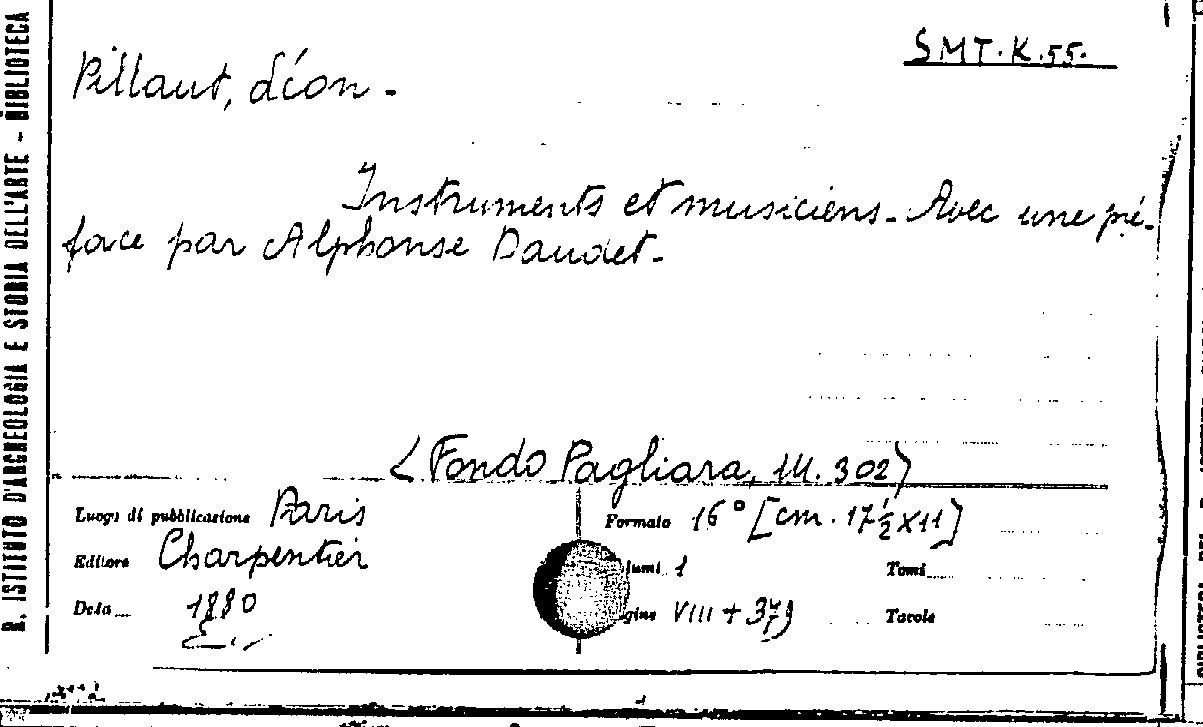 R. ISTITUTO D'ARCHEOLOGIA E STORIA DELL'ARTE - BIBLIOTECA
SMT. K. 55.
Pillaut, Léon -
Instruments et musiciens - Avec une pré-
face par Alphonse Daudet -
<Fondo Pagliara, III. 302>
Luogo di pubblicazione Paris
Formato 16° [cm. 17½ x 11]
Editore Charpentier
lumi 1
Tomi
Data 1880
gine VIII + 379
Tavole